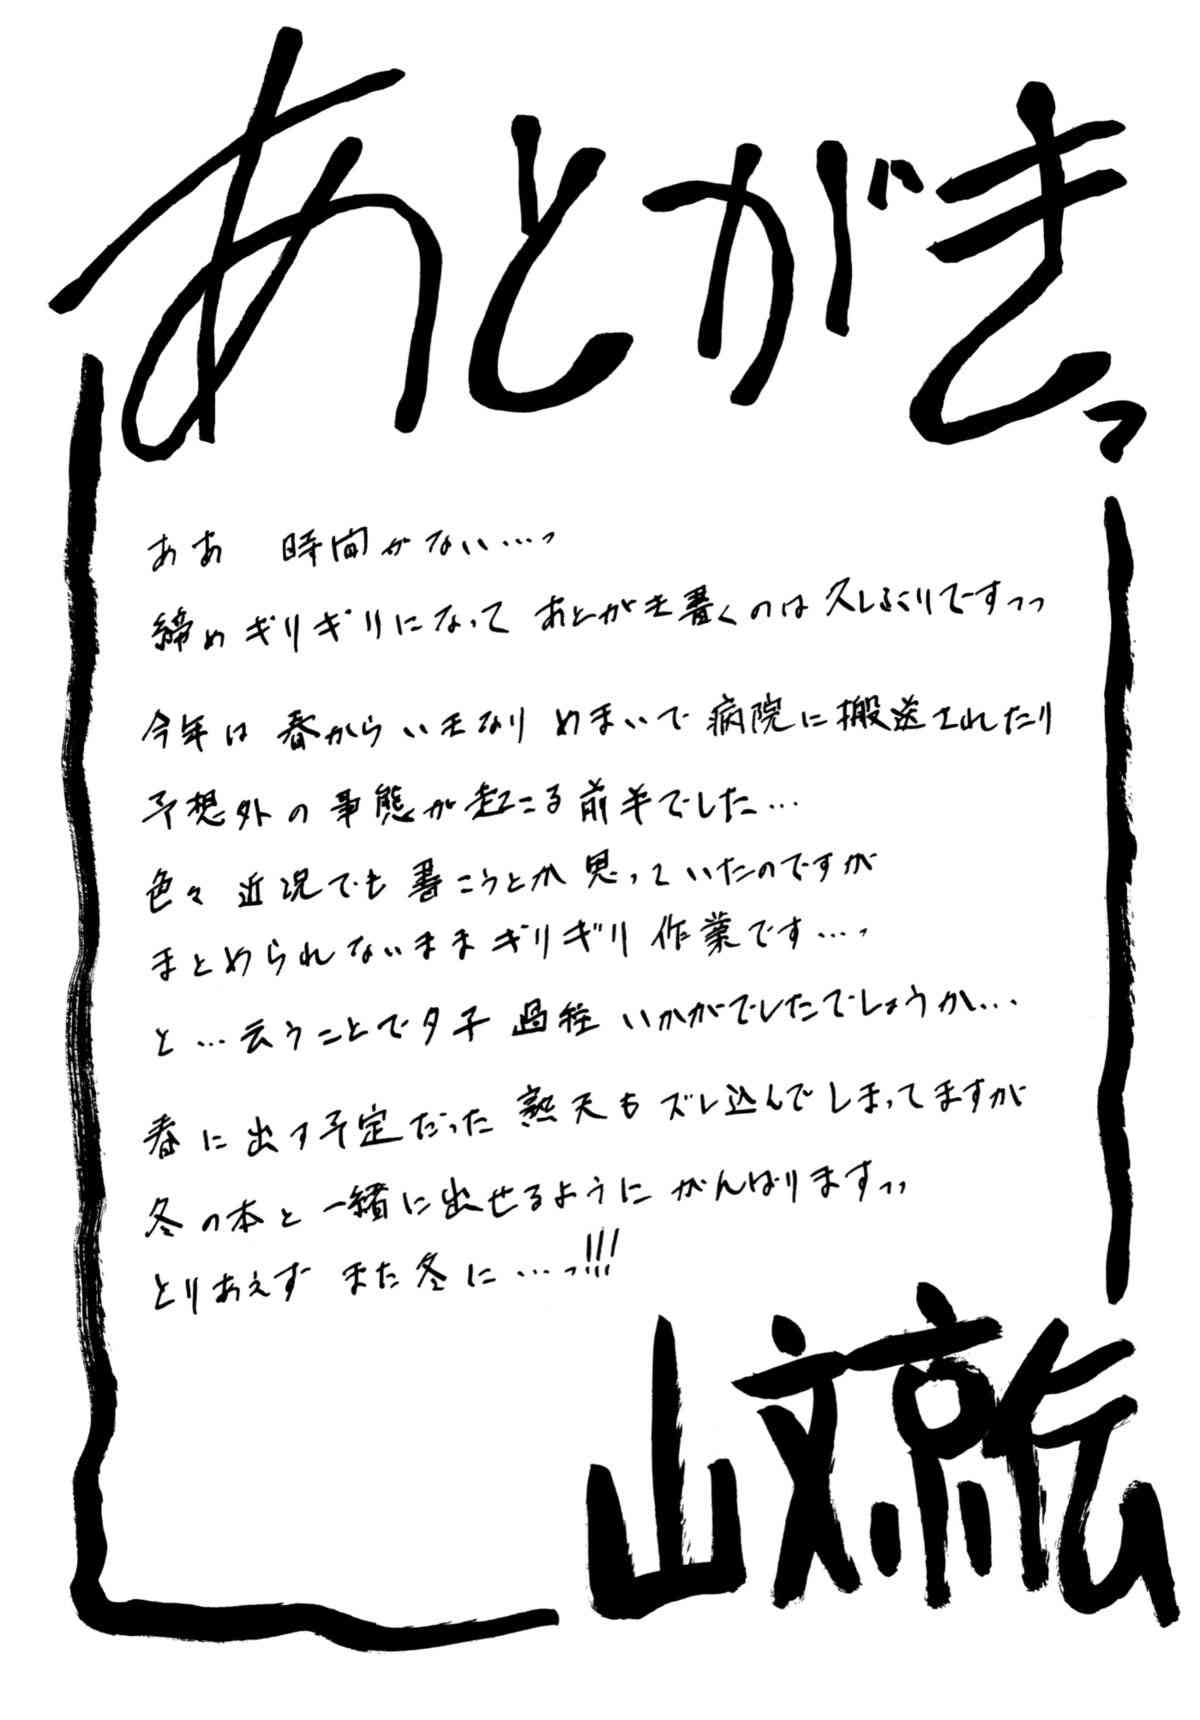 あとがきっ
ああ 時間がない…っ
締めギリギリになって あとがき書くのは 久しぶりですっっ
今年は 春から いきなり めまいで 病院に搬送されたり
予想外の事態が起こる前半でした…
色々近況でも書こうとか思っていたのですが
まとめられないままギリギリ作業です…っ
と…云うことで夕子過程いかがでしたでしょうか…
春に出す予定だった熱天もズレ込んでしまってますが
冬の本と一緒に出せるように がんばりますっっ
とりあえず また冬に…っ!!!
山文京伝